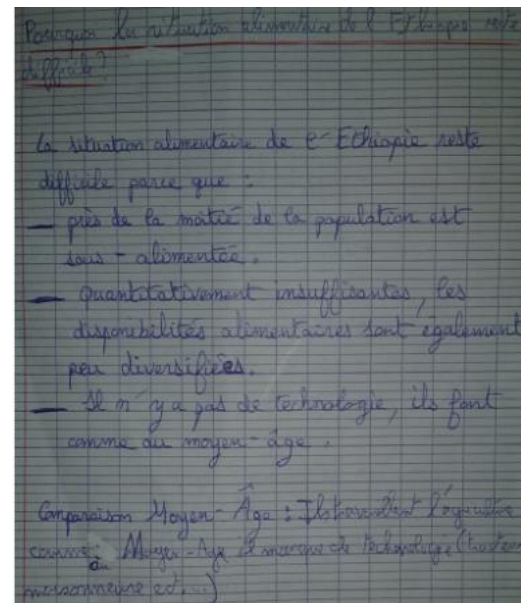 Pourquoi la situation alimentaire de l'Ethiopie reste
difficile?
La situation alimentaire de l'Ethiopie reste
difficile parce que :
— près de la moitié de la population est
sous-alimentée.
— Quantitativement insuffisantes, les
disponibilités alimentaires sont également
peu diversifiées.
— Il n'y a pas de technologie, ils font
comme au moyen-âge.
Comparaison Moyen-Âge : Ils travaillent l'agriculture
comme au Moyen-Age il manque de technologie (tracteur
moissonneuse ect...)